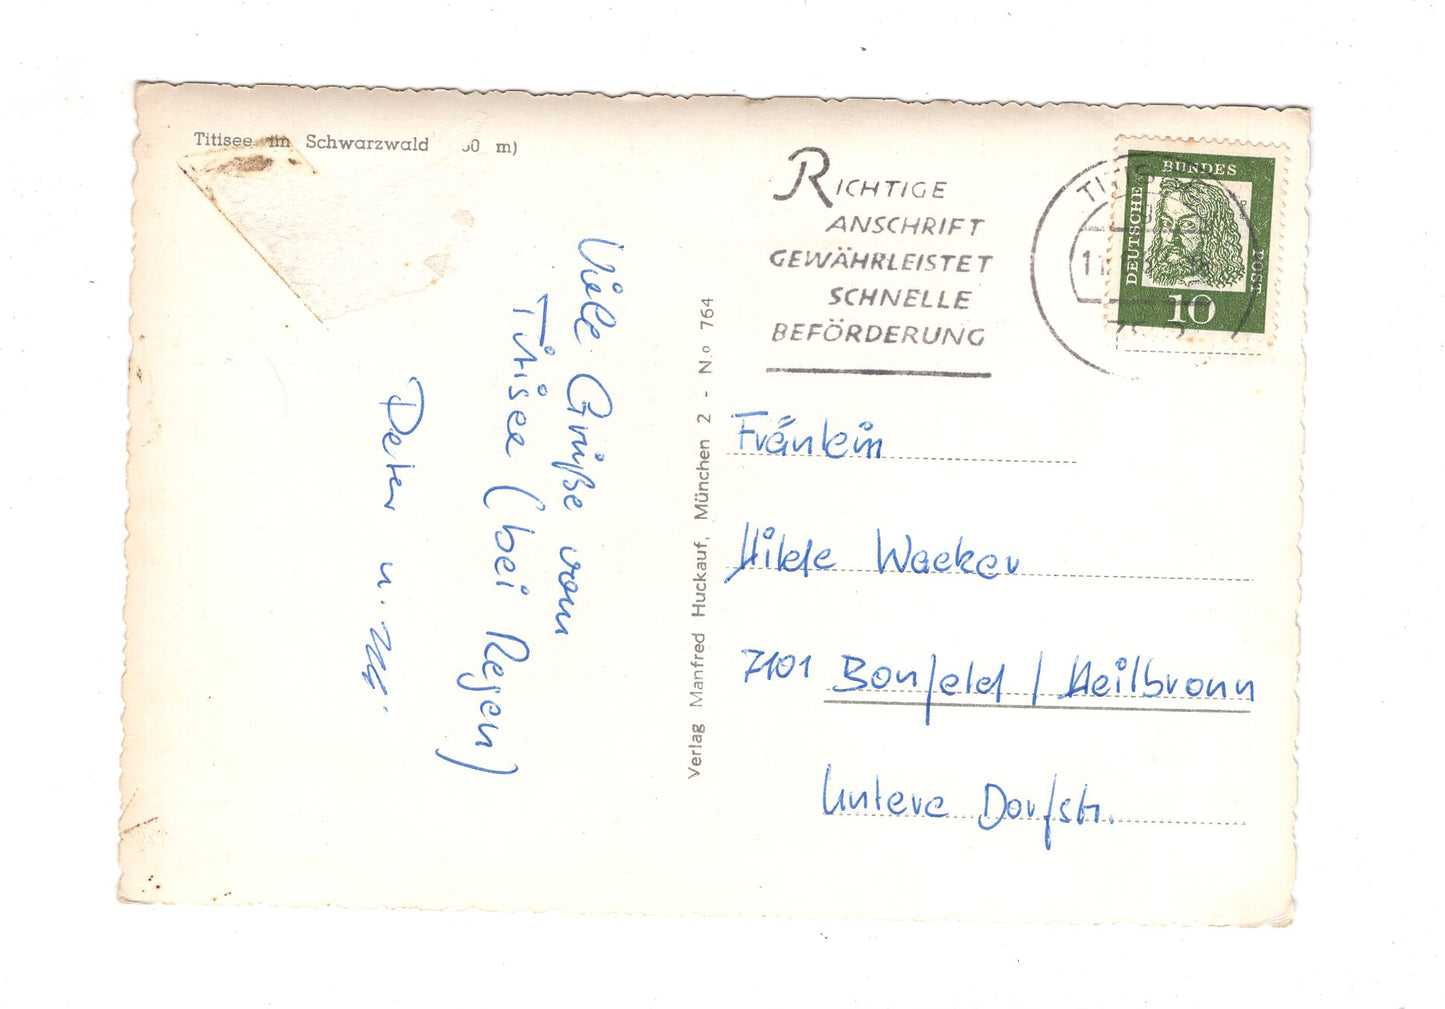 Titisee im Schwarzwald 50 m)
RICHTIGE
ANSCHRIFT
GEWÄHRLEISTET
SCHNELLE
BEFÖRDERUNG
DEUTSCHE
BUNDES
POST
10
Viele Grüße vom
Titisee (bei Regen)
Peter u.
Verlag Manfred Huckauf, München 2 - N.o 764
Fräulein
Hilde Wacker
7101 Bonfeld / Heilbronn
Untere Dorfstr.